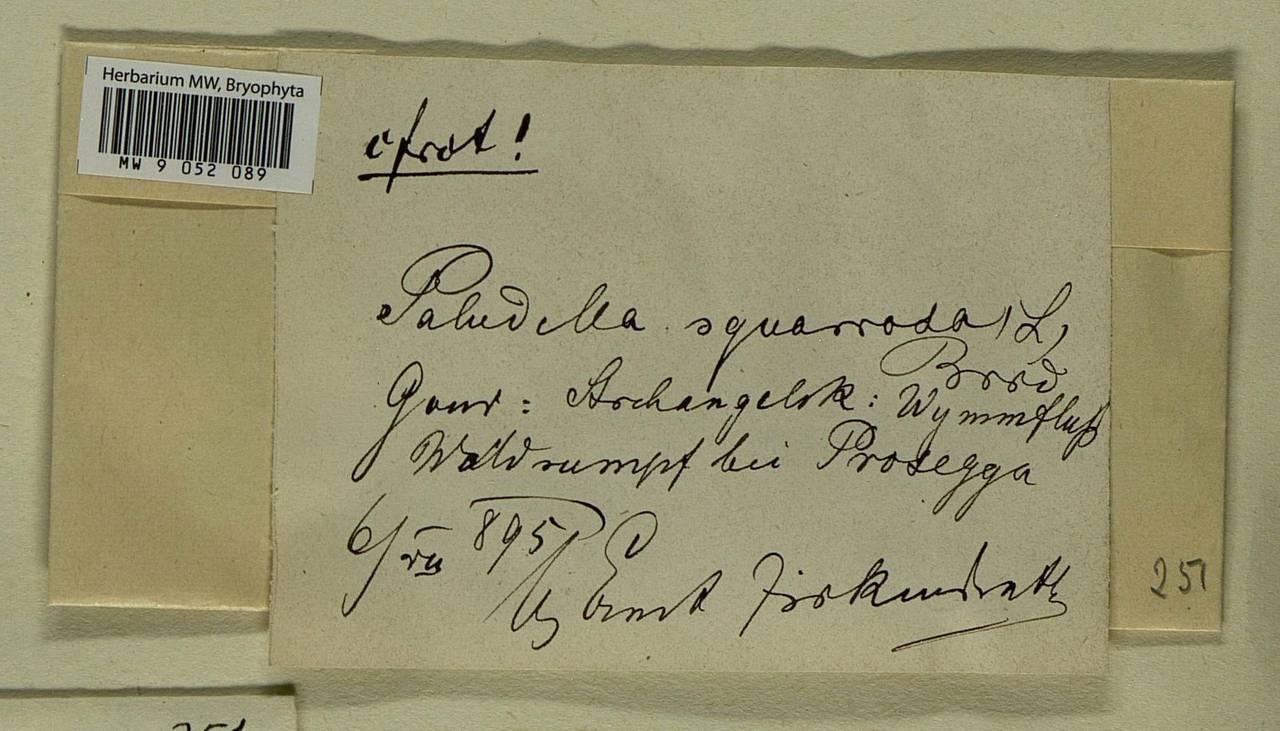 Herbarium MW, Bryophyta
MW 9 052 089
c frct!
Paludella squarrosa (L)
Brid
Gouv: Archangelsk: Wymmfluß
Waldsumpf bei
6/VII 895
251
251